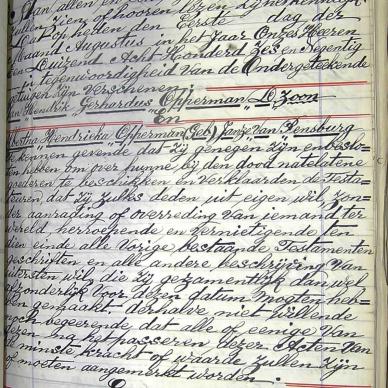 Aan allen en
zullen zien, of hooren lezen, zij het kennelijk
dat op heden den Eerste dag der
Maand Augustus in het Jaar Onzes Heeren
Een Duizend Acht Honderd Zes en Seventig
in tegenwoordigheid van de Ondergeteekende
getuigen zijn verschenen
Jan Hendrik Gerhardus Opperman LD Zoon
En
Hendrieka Opperman (Geb) Janze Van Rensburg
Te kennen gevende dat zij genegen zijn en beslo-
ten hebben om over hunne bij den dood natelatene
goederen te beschikken en verklaarden de Testa-
teuren dat zij zulks deden uit eigen wil, zon-
der aanrading of overreding van iemand ter
wereld, herroepende en vernietigende ten
dien einde alle vorige bestaande Testamenten
geschriften en alle andere beschrijving van
uitersten wil, die zij gezamentlijk dan wel
afzonderlijk voor dezen datum mogten heb-
ben gemaakt. derhalve niet willende
noch begeerende dat alle of eenige van
dezen na het passeren dezer Acten van
de minste kracht of waarde zullen zijn
of moeten aangemerkt worden